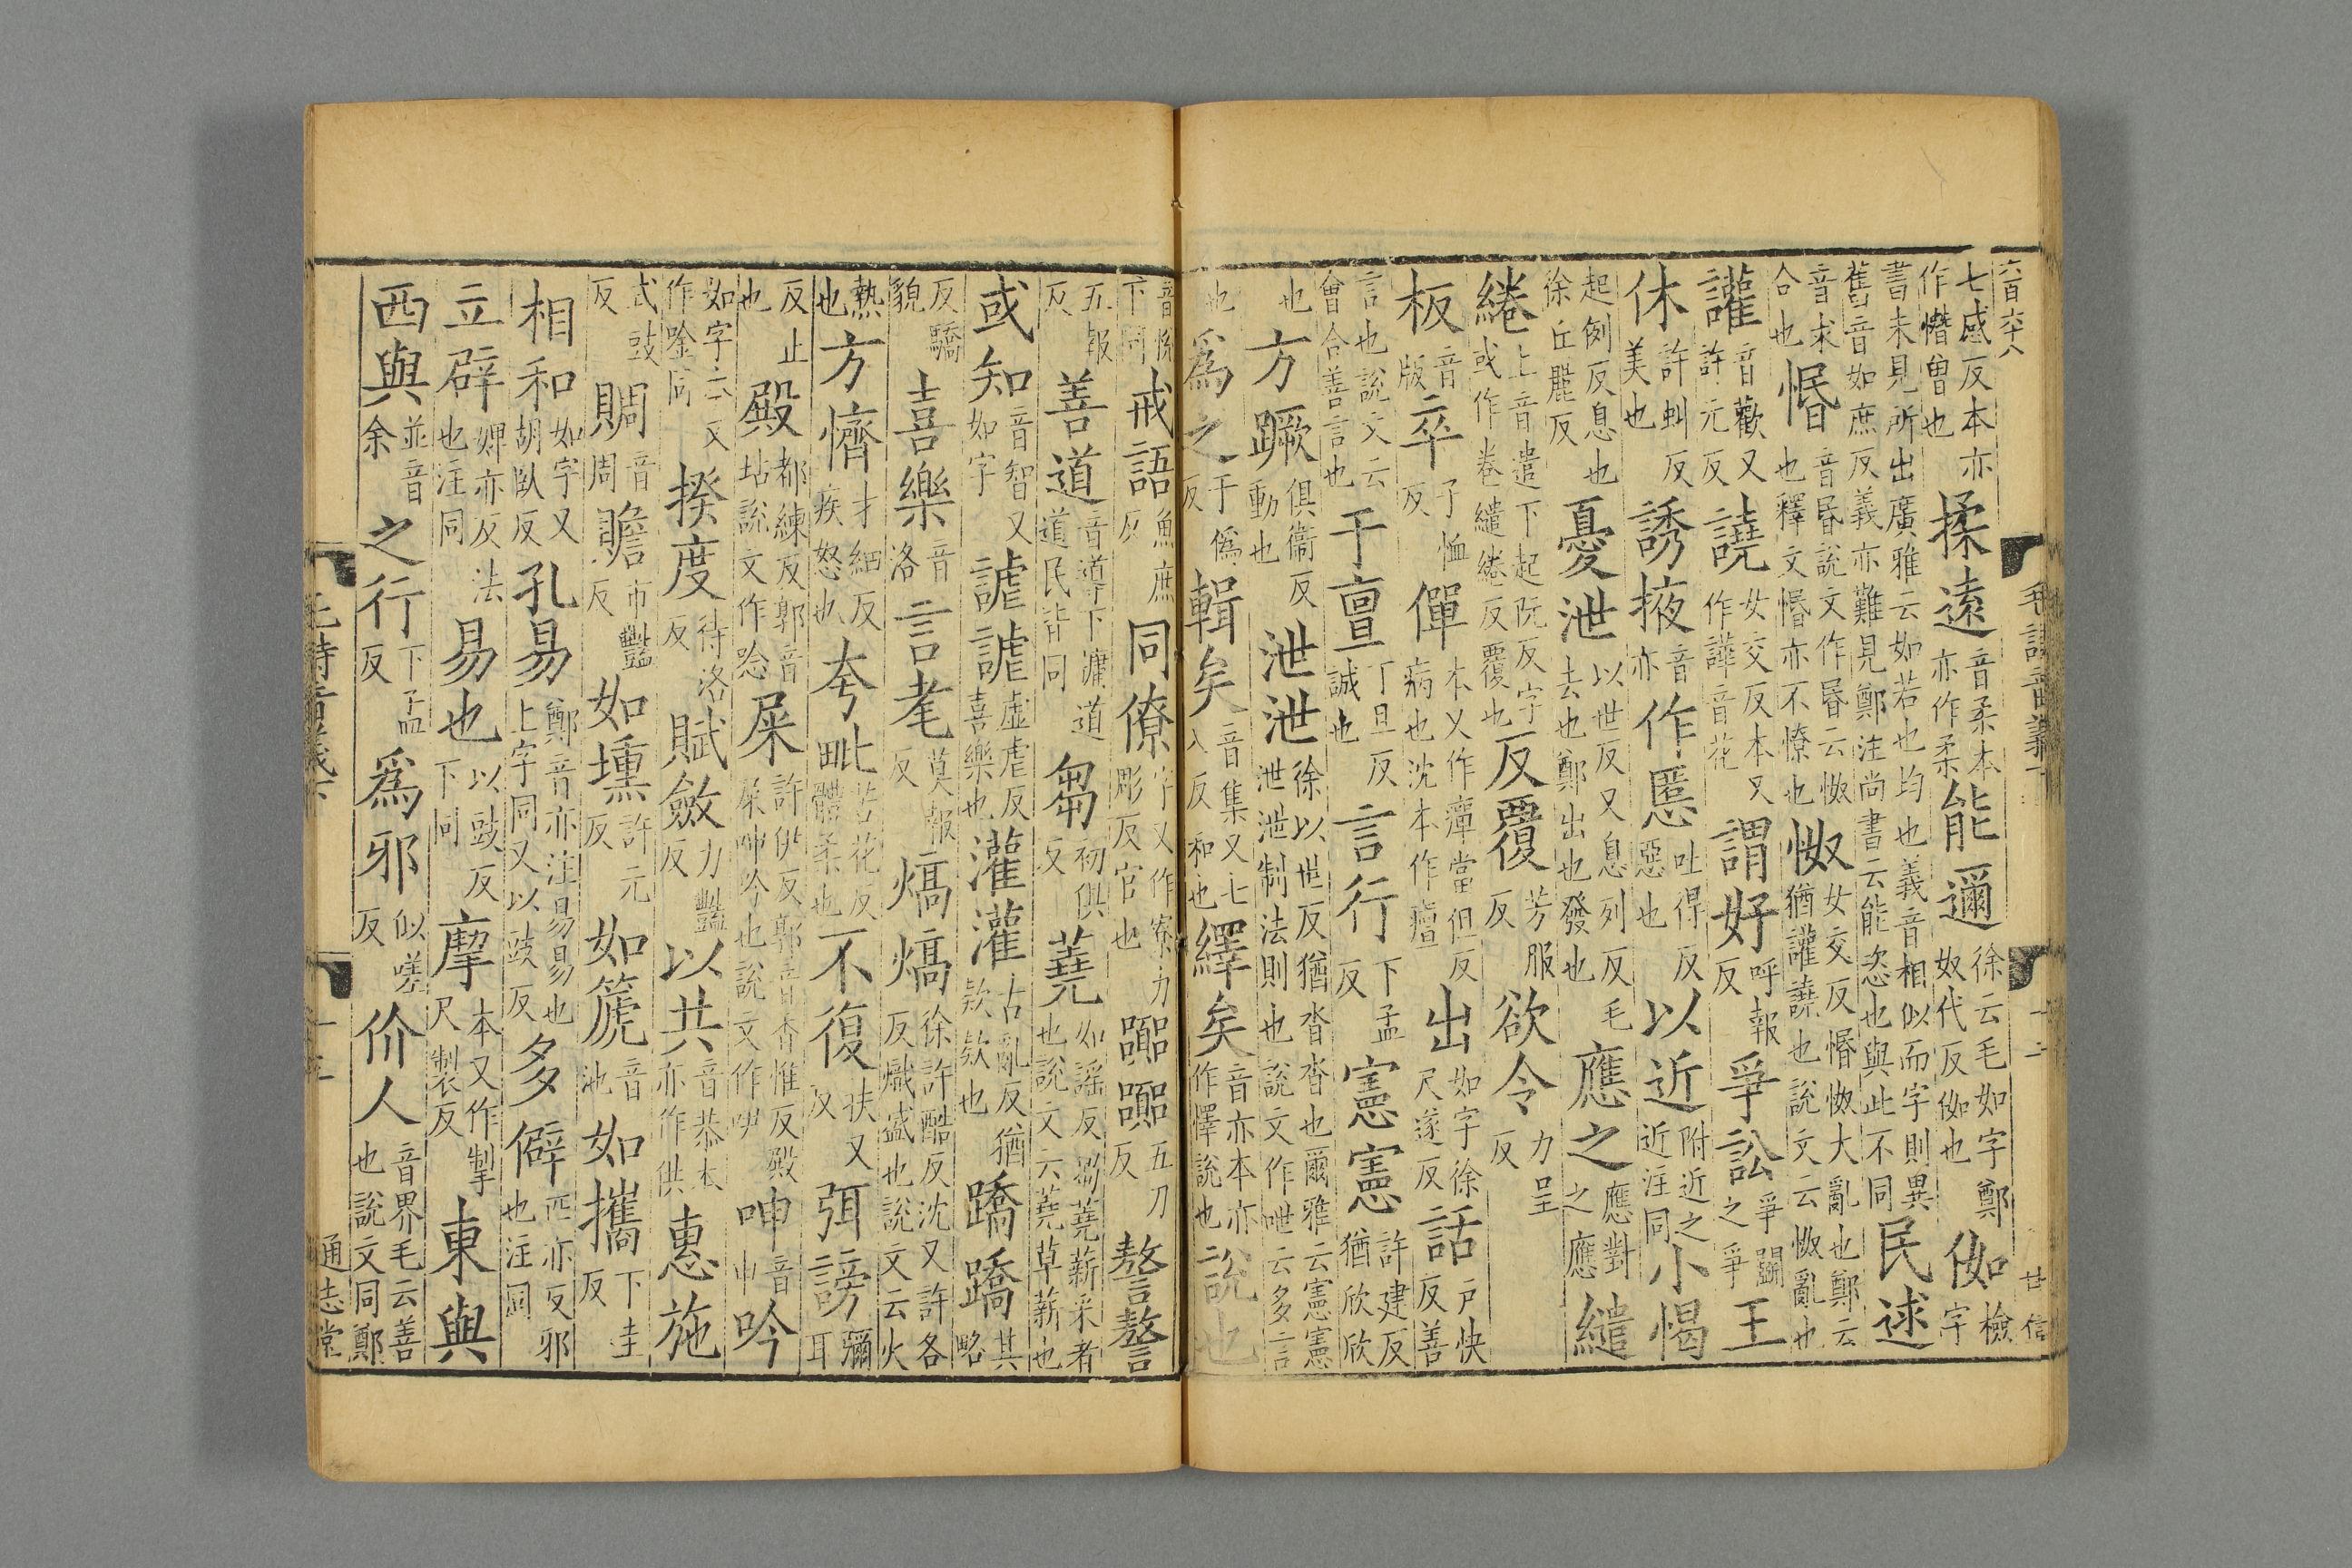 六百六十八
毛詩音義下
十二
甘信
七感反本亦作憯曽也 揉遠 音柔本亦作柔 能邇 徐云毛如字鄭奴代反㑄也 㑄 檢字
書未見所出廣雅云如若也均也義音相似而字則異舊音如庶反義亦難見鄭注尚書云能恣也與此不同 民逑
音求合也 惛 音昏說文作㫻云㤏也釋文惛亦不憭也 怓 女交反惛怓大亂也鄭云猶讙譊也說文云怓亂也
讙 音歡又許元反 譊 女交反本又作譁音花 謂好 呼報反 爭訟 爭鬬之爭 王
休 許虬反美也 誘掖 音亦 作慝 吐得反惡也 以近 附近之近注同 小愒
起例反息也徐丘麗反 憂泄 以世反又息列反毛去也鄭出也發也 應之 應對之應 繾
綣 上音遣下起阮反字或作卷繾綣反覆也 反覆 芳服反 欲令 力呈反
板 音版 卒 子恤反 僤 本又作癉當但反病也沈本作𤺺 出 如字徐尺遂反 話 戶快反善
言也說文云會合善言也 于亶 丁旦反誠也 言行 下孟反 憲憲 許建反猶欣欣
也 方蹶 俱衞反動也 泄泄 徐以世反猶沓沓也爾雅云憲憲泄泄制法則也說文作呭云多言
也 爲之 于僞反 輯矣 音集又七入反和也 繹矣 音亦本亦作懌說也 說也
音悅下同 戒語 魚庶反 同僚 字又作寮力彫反官也 嚻嚻 五刀反 謷謷
五報反 善道 音導下牖道道民皆同 芻 初俱反 蕘 如謠反芻蕘薪采者也說文云蕘草薪也
或知 音智又如字 謔謔 虛虐反喜樂也 灌灌 古亂反猶款款也 蹻蹻 其略
反驕貌 喜樂 音洛 言耄 莫報反 熇熇 徐許酷反沈又許各反熾盛也說文云火
熱也 方懠 才細反疾怒也 夸毗 苦花反體柔也 不復 扶又反 弭謗 彌耳
反止也 殿 都練反郭音坫說文作唸 屎 許伊反郭音香惟反殿屎呻吟也說文作吚 呻 音申 吟
如字云又作唫同 揆度 待洛反 賦斂 力豔反 以共 音恭本亦作供 惠施
式豉反 賙 音周 贍 市豔反 如壎 許元反 如篪 音池 如攜 下圭反
相和 如字又胡臥反 孔易 鄭音亦注易易也上字同又以豉反 多僻 匹亦反邪也注同
立辟 婢亦反法也注同 易也 以豉反下同 摩 本又作掣尺製反 東與
西與 並音余 之行 下孟反 爲邪 似嗟反 价人 音界毛云善也說文同鄭
毛詩音義下
十三
通志堂